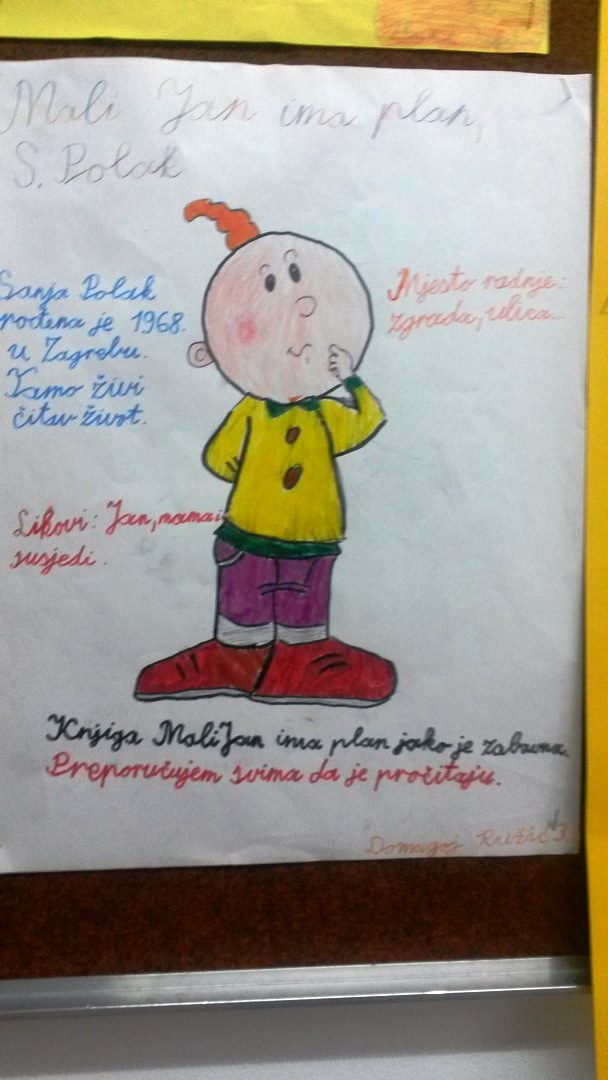 Mali Jan ima plan,
S. Polak
Sanja Polak
rođena je 1968.
u Zagrebu.
Tamo živi
čitav život.
Mjesto radnje:
zgrada, ulica...
Likovi: Jan, mama i
susjedi.
Knjiga Mali Jan ima plan jako je zabavna.
Preporučujem svima da je pročitaju.
Domagoj